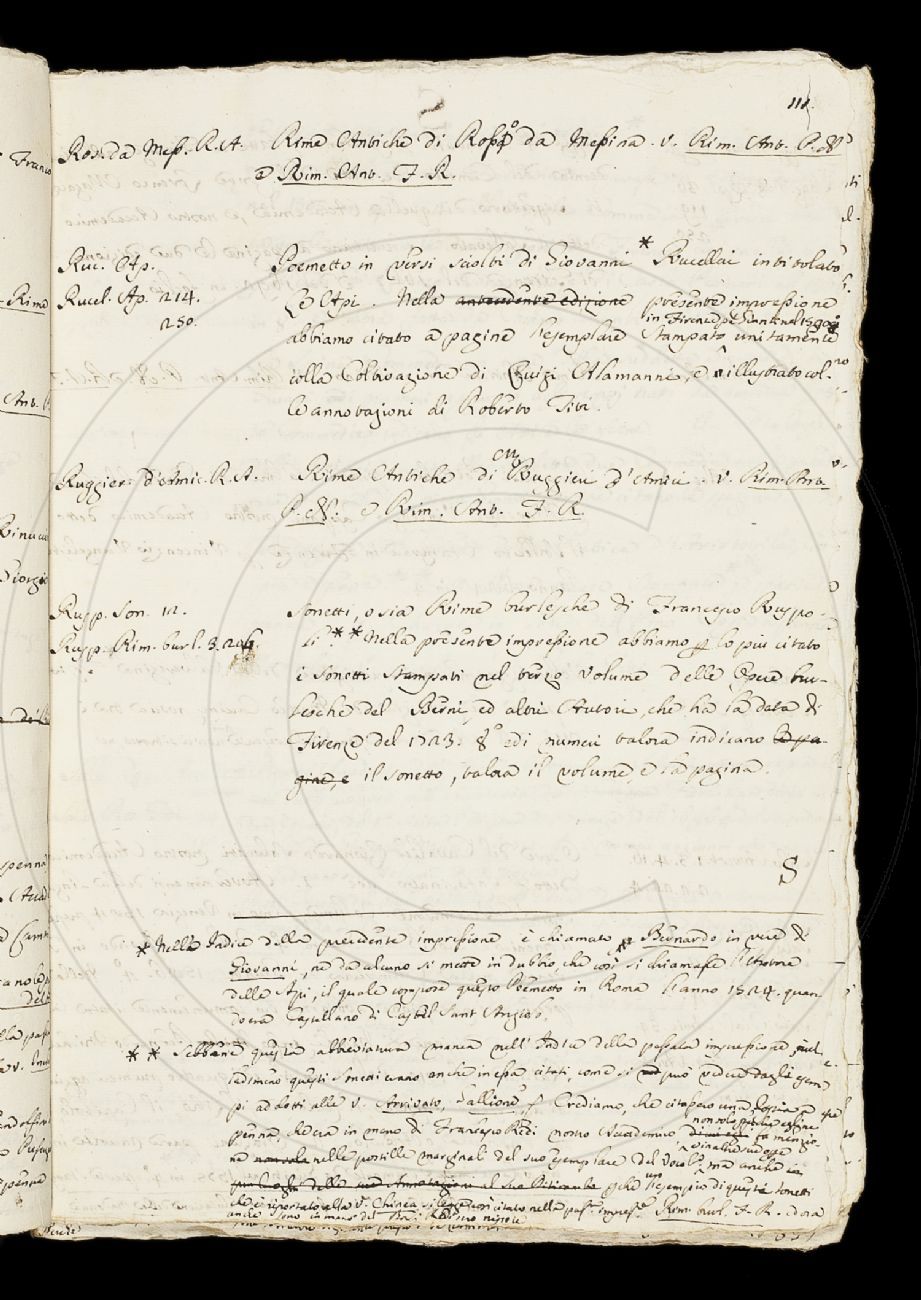 111.
Ros. da Mess. R. A. Rime Antiche di Rosso da Messina. v. Rim. Ant. P. N.
e Rim. Ant. F. R.
Ruc. Ap. Poemetto in versi sciolti di Giovanni * Rucellai intitolato
Rucel. Ap. 214. Le Api. Nella antecedente edizione presente impressione
250. in Firenze
abbiamo citato a pagine l'esemplare stampato unitamente
colla Coltivazione di Luigi Alamanni, e illustrato col-
le annotazioni di Roberto Titi.
Ruggier. d'Amic. R. A. Rime Antiche di Ruggieri d'Amici. v. Rim. Ant.
P. N. e Rim. Ant. F. R.
Rusp. Son. 12. Sonetti, o sia Rime burlesche di Francesco Ruspo-
Rusp. Rim. burl. 3. li ** Nella presente impressione abbiamo per lo più citato
i Sonetti stampati nel terzo volume delle Opere bur-
lesche del Berni, ed altri Autori, che ha la data di
Firenze del 1723. 8° ed i numeri talora indicano le pa-
gine, e il sonetto, talora il volume, e la pagina.
S
* Nell' Indice della precedente impressione è chiamato Bernardo in vece di
Giovanni, ne da alcuno si mette in dubbio, che così si chiamasse l'Autore
delle Api, il quale compose questo Poemetto in Roma l'anno 1524. quan-
do era Castellano di Castel Sant' Angiolo.
** Sebbene questa abbreviatura manca nell' Indice della passata impressione, nul-
ladimeno questi Sonetti erano anche in essa citati, come si può vedere dagli esem-
pi addotti alle v. Arrivato, Crediamo, che citassero una Copia a
penna, che era in mano di Francesco Redi nostro Accademico, non solo perchè egli ne
fa menzio-
ne nelle postille marginali del suo esemplare del Vocab. ma anche
perchè un esempio di questi Sonetti
che è riportato alla V. Chinea si legge citato nella pass. impress. Rim. burl. F. R.